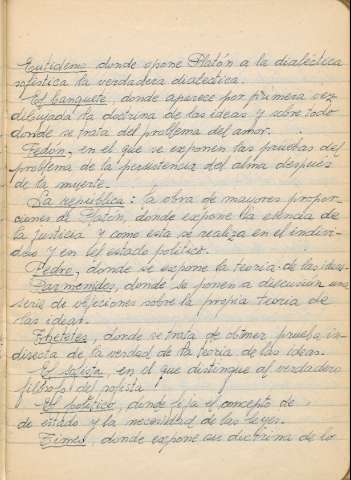 Eutidemo donde opone Platón a la dialéctica
sofística la verdadera dialectica.
El banquete, donde aparece por primera vez
dibujada la doctrina de las ideas y sobre todo
donde se trata del problema del amor.
Fedón, en el que se exponen las pruebas del
problema de la persistencia del alma después
de la muerte.
La republica: la obra de mayores propor-
ciones de Platón, donde expone la esencia de
la justicia y como esta se realiza en el indivi-
duo y en el estado politico.
Fedro, donde se expone la teoria de las ideas.
Parmenides, donde se ponen a discusión una
serie de objeciones sobre la propia teoria de
las ideas.
Thetetes, donde se trata de obtener prueba in-
directa de la verdad de la teoria de las ideas.
El sofista, en el que distingue al verdadero
filosofo del sofista.
El politico, donde fija el concepto de
de estado y la necesidad de las leyes.
Timeo, donde expone su doctrina de lo